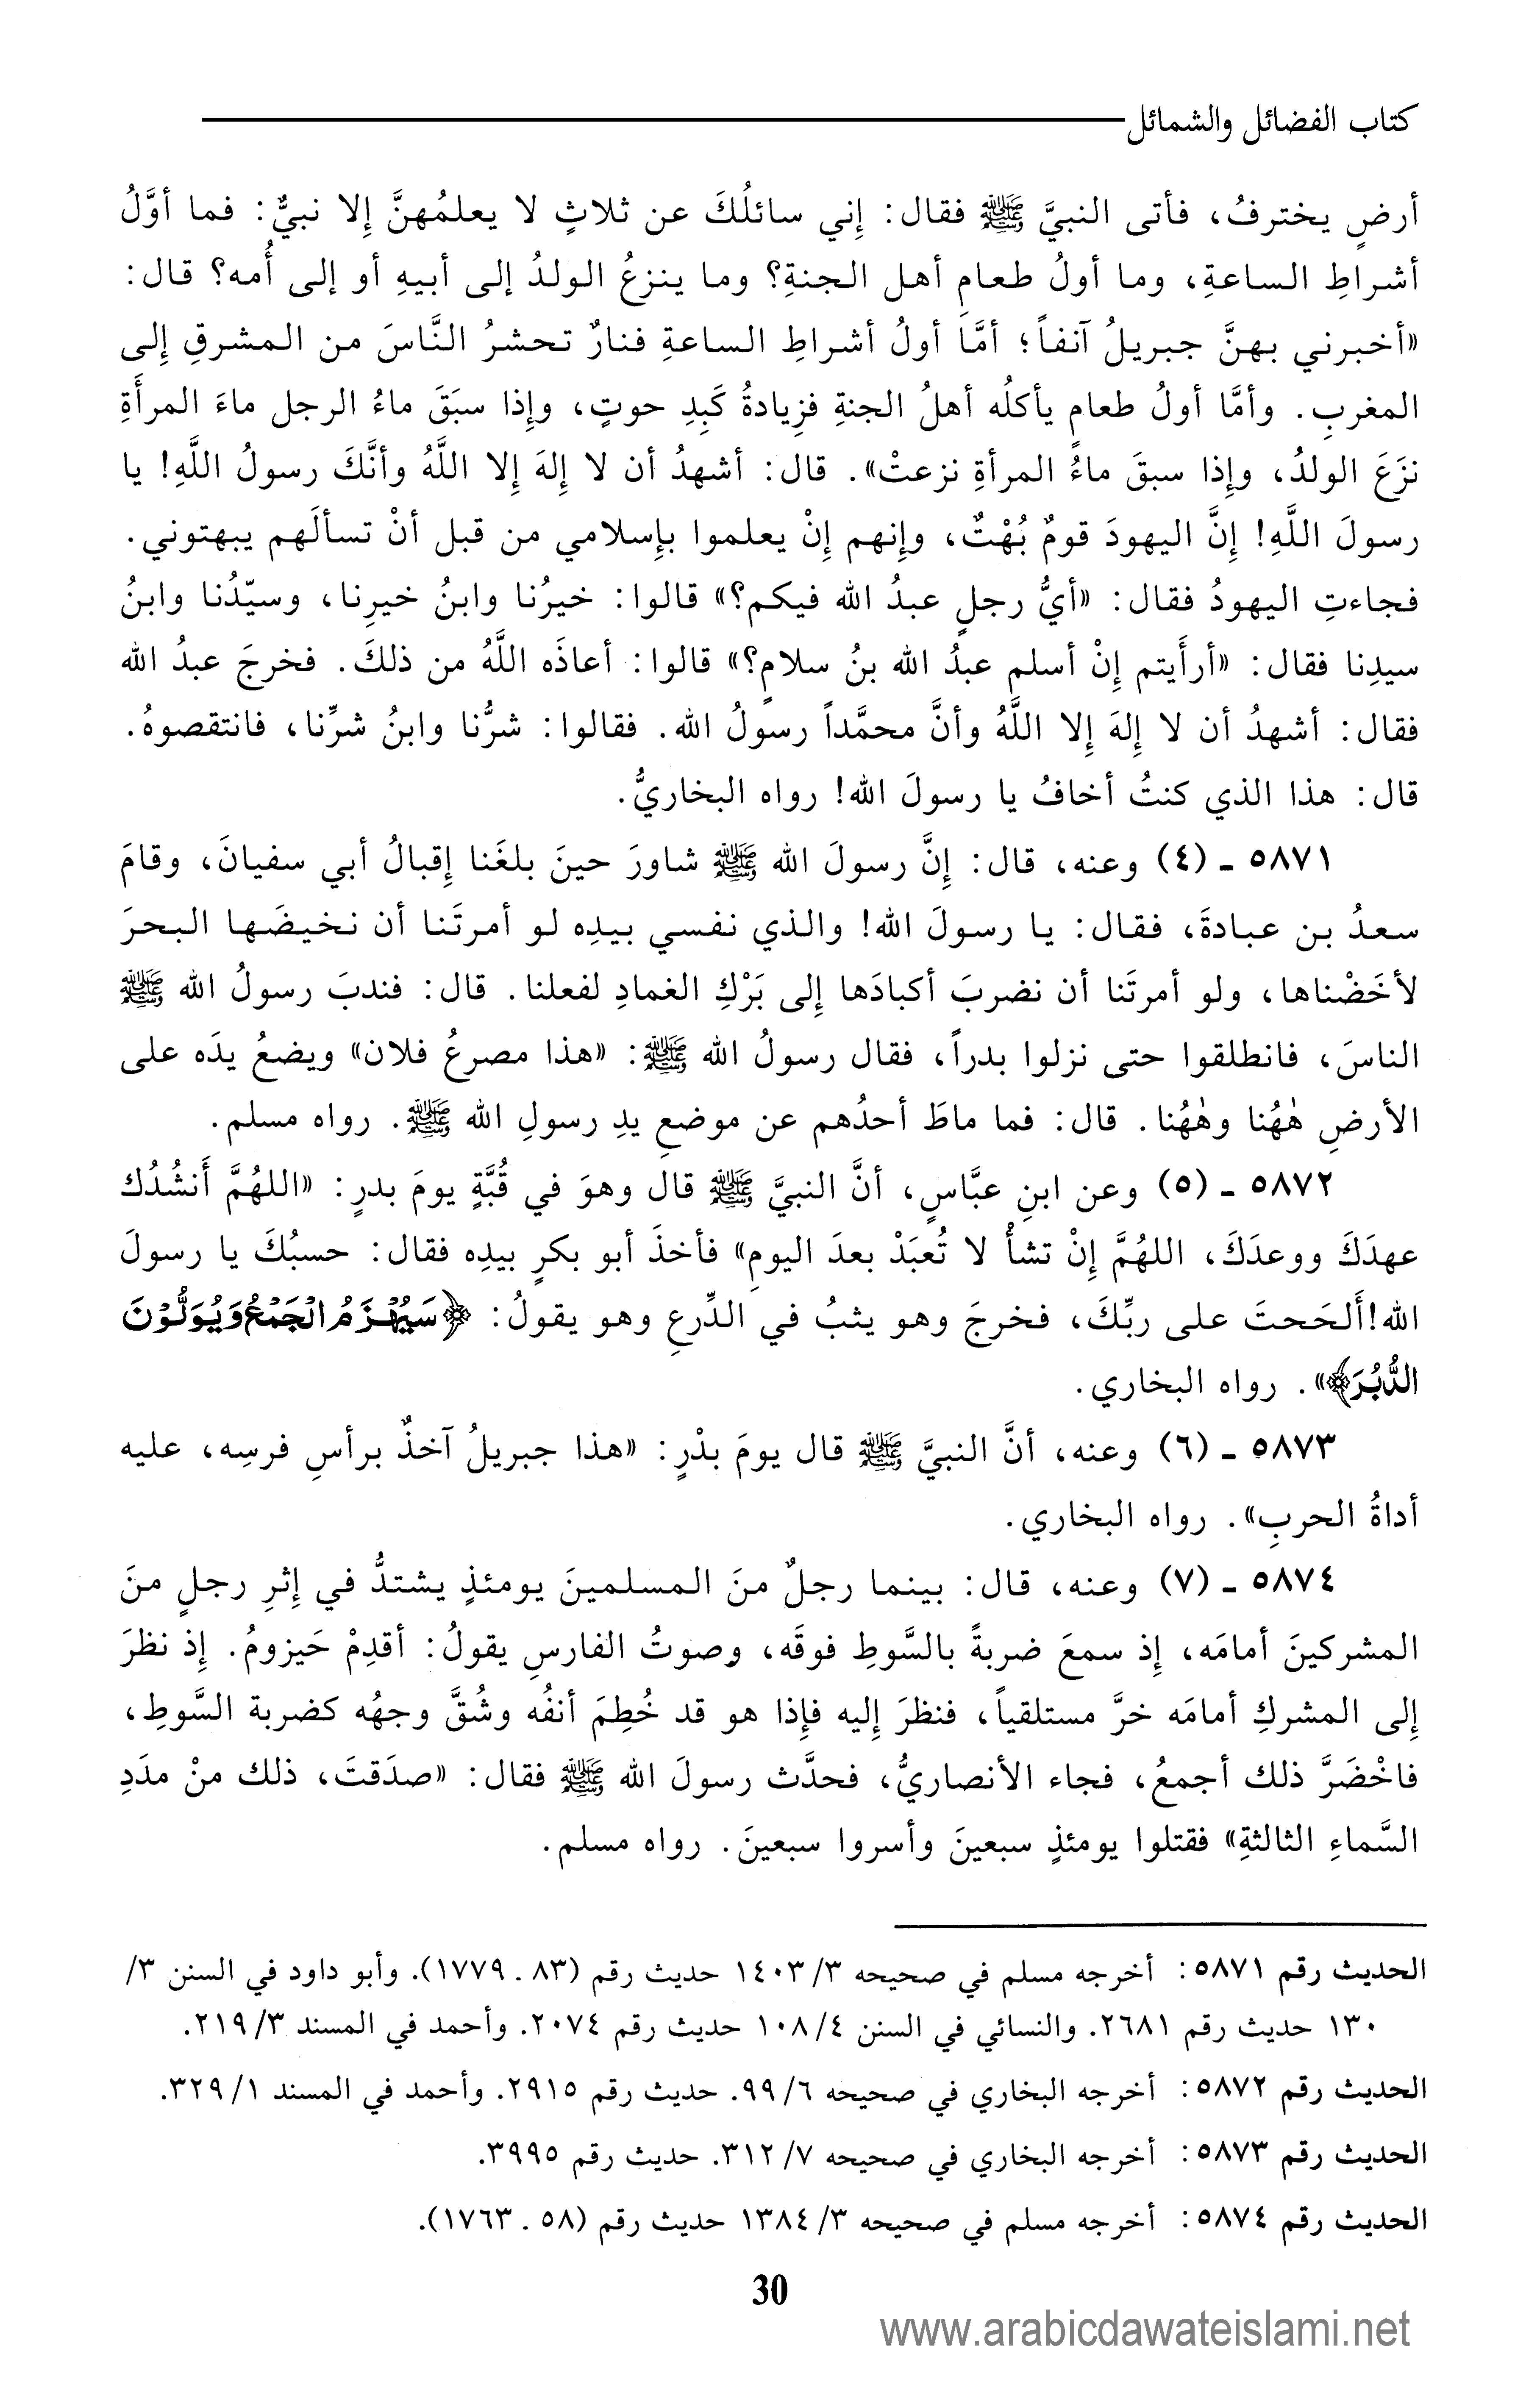 كتاب الفضائل والشمائل
أرضٍ يخترفُ، فأتى النبيَّ ﷺ فقال: إِني سائلُكَ عن ثلاثٍ لا يعلمُهنَّ إِلا نبيٌّ: فما أوَّلُ
أشراطِ الساعةِ، وما أولُ طعامِ أهل الجنةِ؟ وما ينزعُ الولدُ إلى أبيهِ أو إلى أُمه؟ قال:
«أخبرني بهنَّ جبريلُ آنفاً؛ أمَّا أولُ أشراطِ الساعةِ فنارٌ تحشرُ النَّاسَ من المشرقِ إِلى
المغربِ. وأمَّا أولُ طعامٍ يأكلُه أهلُ الجنةِ فزِيادةُ كَبِدِ حوتٍ، وإِذا سبَقَ ماءُ الرجل ماءَ المرأَةِ
نزَعَ الولدُ، وإِذا سبقَ ماءُ المرأةِ نزعتْ». قال: أشهدُ أن لا إِلهَ إِلا اللَّهُ وأنَّكَ رسولُ اللَّهِ! يا
رسولَ اللَّهِ! إِنَّ اليهودَ قومٌ بُهْتٌ، وإِنهم إِنْ يعلموا بإِسلامي من قبل أنْ تسألَهم يبهتوني.
فجاءتِ اليهودُ فقال: «أيُّ رجلٍ عبدُ الله فيكم؟» قالوا: خيرُنا وابنُ خيرِنا، وسيّدُنا وابنُ
سيدِنا فقال: «أرأَيتم إِنْ أسلم عبدُ الله بنُ سلامٍ؟» قالوا: أعاذَه اللَّهُ من ذلكَ. فخرجَ عبدُ الله
فقال: أشهدُ أن لا إِلهَ إِلا اللَّهُ وأنَّ محمَّداً رسولُ الله. فقالوا: شرُّنا وابنُ شرِّنا، فانتقصوهُ.
قال: هذا الذي كنتُ أخافُ يا رسولَ الله! رواه البخاريُّ.
٥٨٧١ ـ (٤) وعنه، قال: إِنَّ رسولَ الله ﷺ شاورَ حينَ بلغَنا إِقبالُ أبي سفيانَ، وقامَ
سعدُ بن عبادةَ، فقال: يا رسولَ الله! والذي نفسي بيدِه لو أمرتَنا أن نخيضَها البحرَ
لأخَضْناها، ولو أمرتَنا أن نضربَ أكبادَها إِلى بَرْكِ الغمادِ لفعلنا. قال: فندبَ رسولُ الله ﷺ
الناسَ، فانطلقوا حتى نزلوا بدراً، فقال رسولُ الله ﷺ: «هذا مصرعُ فلان» ويضعُ يدَه على
الأرضِ هٰهُنا وهٰهُنا. قال: فما ماطَ أحدُهم عن موضعِ يدِ رسولِ الله ﷺ. رواه مسلم.
٥٨٧٢ ـ (٥) وعن ابنِ عبَّاسٍ، أنَّ النبيَّ ﷺ قال وهوَ في قُبَّةٍ يومَ بدرٍ: «اللهُمَّ أَنشُدُك
عهدَكَ ووعدَكَ، اللهُمَّ إِنْ تشأْ لا تُعبَدْ بعدَ اليومِ» فأخذَ أبو بكرٍ بيدِه فقال: حسبُكَ يا رسولَ
الله!أَلحَحتَ على ربِّكَ، فخرجَ وهو يثبُ في الدِّرعِ وهو يقولُ: ﴿سَيُهْزَمُ الْجَمْعُ وَيُوَلُّونَ
الدُّبُرَ﴾». رواه البخاري.
٥٨٧٣ ـ (٦) وعنه، أنَّ النبيَّ ﷺ قال يومَ بدْرٍ: «هذا جبريلُ آخذٌ برأسِ فرسِه، عليه
أداةُ الحربِ». رواه البخاري.
٥٨٧٤ ـ (٧) وعنه، قال: بينما رجلٌ منَ المسلمينَ يومئذٍ يشتدُّ في إِثرِ رجلٍ منَ
المشركينَ أمامَه، إِذ سمعَ ضربةً بالسَّوطِ فوقَه، وصوتُ الفارسِ يقولُ: أقدِمْ حَيزومُ. إِذ نظرَ
إِلى المشركِ أمامَه خرَّ مستلقياً، فنظرَ إِليه فإِذا هو قد خُطِمَ أنفُه وشُقَّ وجهُه كضربة السَّوطِ،
فاخْضَرَّ ذلك أجمعُ، فجاء الأنصاريُّ، فحدَّث رسولَ الله ﷺ فقال: «صدَقتَ، ذلك منْ مدَدِ
السَّماءِ الثالثةِ» فقتلوا يومئذٍ سبعينَ وأسروا سبعينَ. رواه مسلم.
الحديث رقم ٥٨٧١: أخرجه مسلم في صحيحه ٣/ ١٤٠٣ حديث رقم (٨٣ ـ ١٧٧٩). وأبو داود في السنن ٣/
١٣٠ حديث رقم ٢٦٨١. والنسائي في السنن ٤/ ١٠٨ حديث رقم ٢٠٧٤. وأحمد في المسند ٣/ ٢١٩.
الحديث رقم ٥٨٧٢: أخرجه البخاري في صحيحه ٦/ ٩٩. حديث رقم ٢٩١٥. وأحمد في المسند ١/ ٣٢٩.
الحديث رقم ٥٨٧٣: أخرجه البخاري في صحيحه ٧/ ٣١٢. حديث رقم ٣٩٩٥.
الحديث رقم ٥٨٧٤: أخرجه مسلم في صحيحه ٣/ ١٣٨٤ حديث رقم (٥٨ ـ ١٧٦٣).
30
www.arabicdawateislami.net